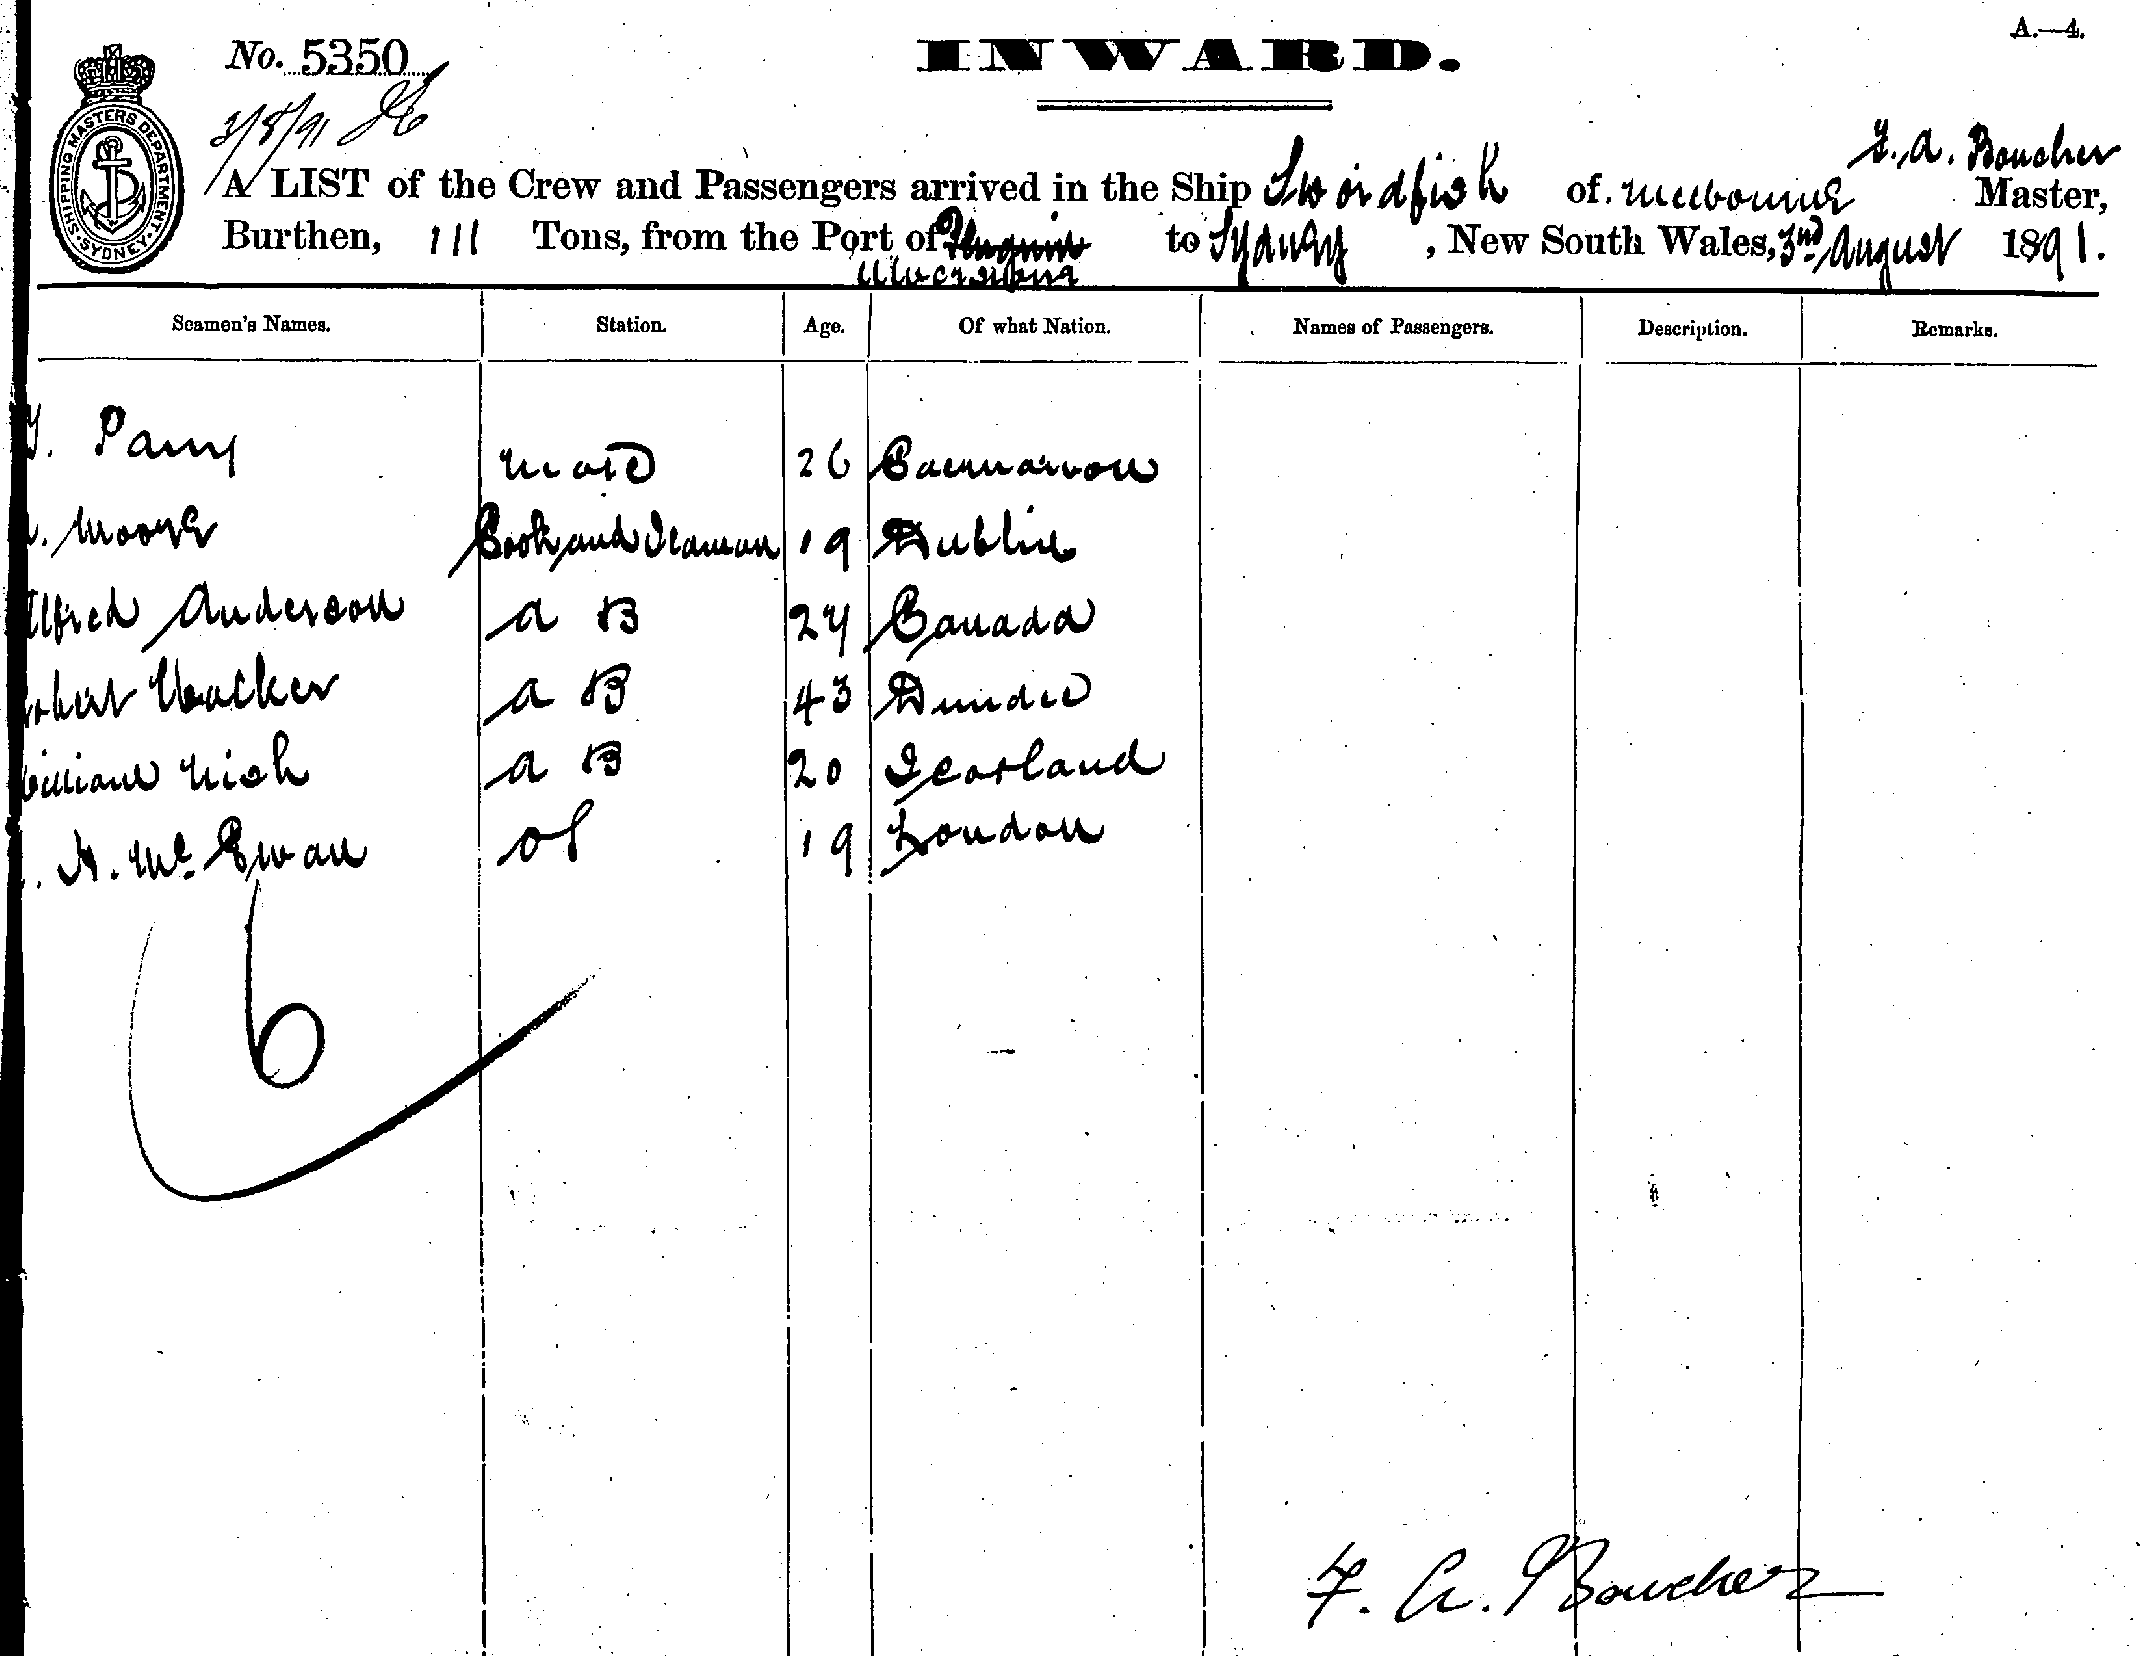 A.—4.
No. 5350
INWARD.
3/8/91
SHIPPING MASTERS DEPARTMENT. SYDNEY.
F. A. Boucher
A LIST of the Crew and Passengers arrived in the Ship Swordfish of Melbourne Master,
Burthen, 111 Tons, from the Port of Penguin to Sydney, New South Wales, 3rd August 1891.
Ulverstone
Seamen's Names. Station. Age. Of what Nation. Names of Passengers. Description. Remarks.
Parry Mate 26 Caernarvon
Moore Cook and Seaman 19 Dublin
Alfred Anderson A B 24 Canada
Robert Walker A B 43 Dundee
William Nish A B 20 Scotland
A. McEwan OS 19 London
6
F. A. Boucher